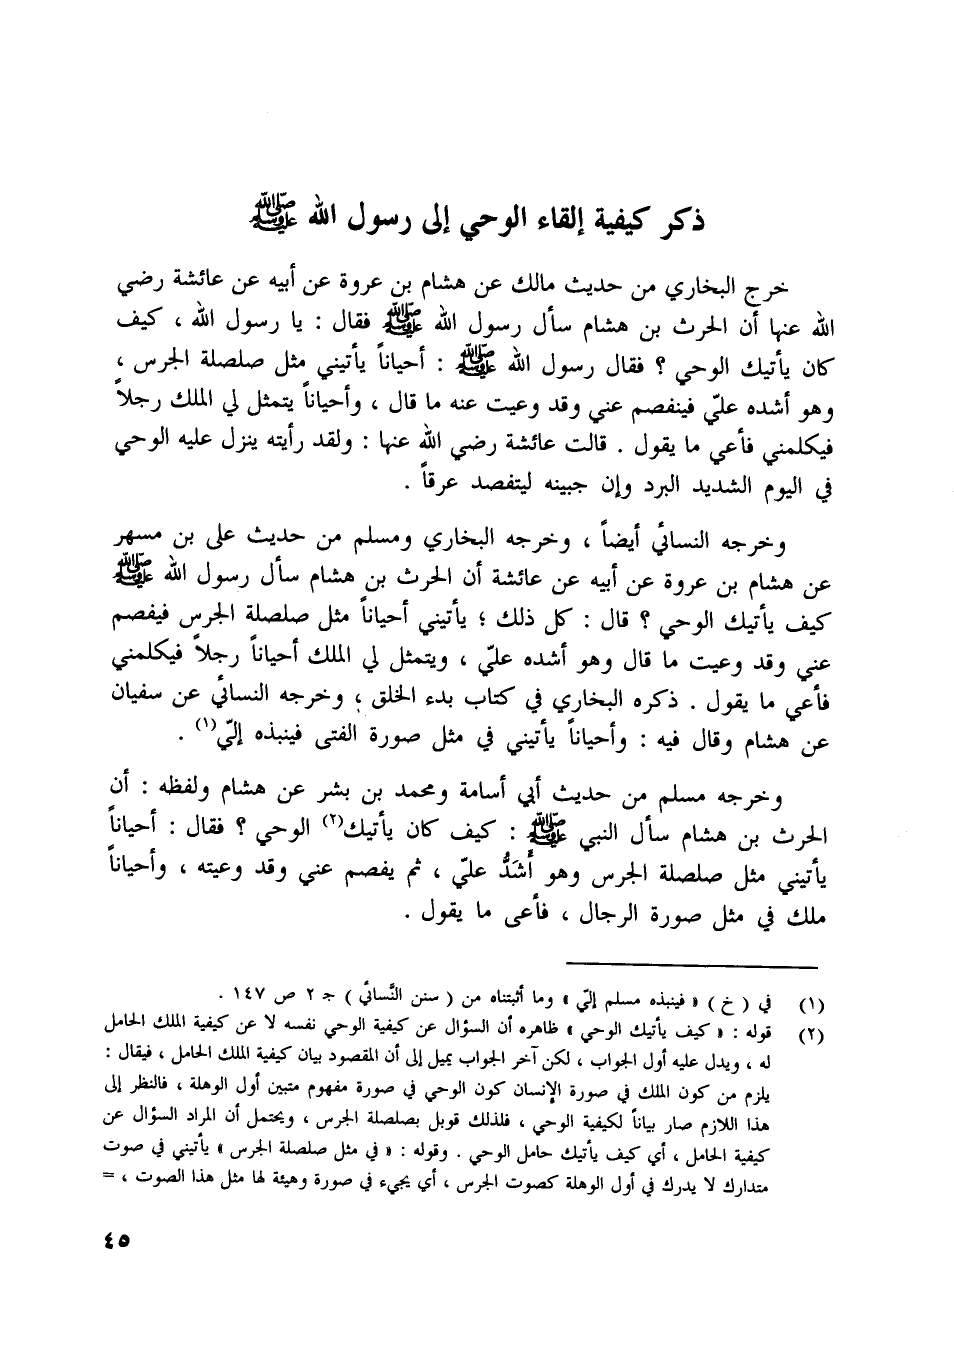 ذكر كيفية إلقاء الوحي إلى رسول الله ﷺ
خرج البخاري من حديث مالك عن هشام بن عروة عن أبيه عن عائشة رضي
الله عنها أن الحرث بن هشام سأل رسول الله ﷺ فقال : يا رسول الله ، كيف
كان يأتيك الوحي ؟ فقال رسول الله ﷺ : أحياناً يأتيني مثل صلصلة الجرس ،
وهو أشده عليّ فينفصم عني وقد وعيت عنه ما قال ، وأحياناً يتمثل لي الملك رجلاً
فيكلمني فأعي ما يقول . قالت عائشة رضي الله عنها : ولقد رأيته ينزل عليه الوحي
في اليوم الشديد البرد وإن جبينه ليتفصد عرقاً .
وخرجه النسائي أيضاً ، وخرجه البخاري ومسلم من حديث على بن مسهر
عن هشام بن عروة عن أبيه عن عائشة أن الحرث بن هشام سأل رسول الله ﷺ
كيف يأتيك الوحي ؟ قال : كل ذلك ؛ يأتيني أحياناً مثل صلصلة الجرس فيفصم
عني وقد وعيت ما قال وهو أشده عليّ ، ويتمثل لي الملك أحياناً رجلاً فيكلمني
فأعي ما يقول . ذكره البخاري في كتاب بدء الخلق ؛ وخرجه النسائي عن سفيان
عن هشام وقال فيه : وأحياناً يأتيني في مثل صورة الفتى فينبذه إليّ(١) .
وخرجه مسلم من حديث أبي أسامة ومحمد بن بشر عن هشام ولفظه : أن
الحرث بن هشام سأل النبي ﷺ : كيف كان يأتيك(٢) الوحي ؟ فقال : أحياناً
يأتيني مثل صلصلة الجرس وهو أَشَدُّ عليّ ، ثم يفصم عني وقد وعيته ، وأحياناً
ملك في مثل صورة الرجال ، فأعى ما يقول .
(١) في ( خ ) « فينبذه مسلم إليّ » وما أثبتناه من ( سنن النَّسائي ) جـ ٢ ص ١٤٧ .
(٢) قوله : « كيف يأتيك الوحي » ظاهره أن السؤال عن كيفية الوحي نفسه لا عن كيفية الملك الحامل
له ، ويدل عليه أول الجواب ، لكن آخر الجواب يميل إلى أن المقصود بيان كيفية الملك الحامل ، فيقال :
يلزم من كون الملك في صورة الإنسان كون الوحي في صورة مفهوم متبين أول الوهلة ، فالنظر إلى
هذا اللازم صار بياناً لكيفية الوحي ، فلذلك قوبل بصلصلة الجرس ، ويحتمل أن المراد السؤال عن
كيفية الحامل ، أي كيف يأتيك حامل الوحي . وقوله : « في مثل صلصلة الجرس » يأتيني في صوت
متدارك لا يدرك في أول الوهلة كصوت الجرس ، أي يجيء في صورة وهيئة لها مثل هذا الصوت ، =
٤٥